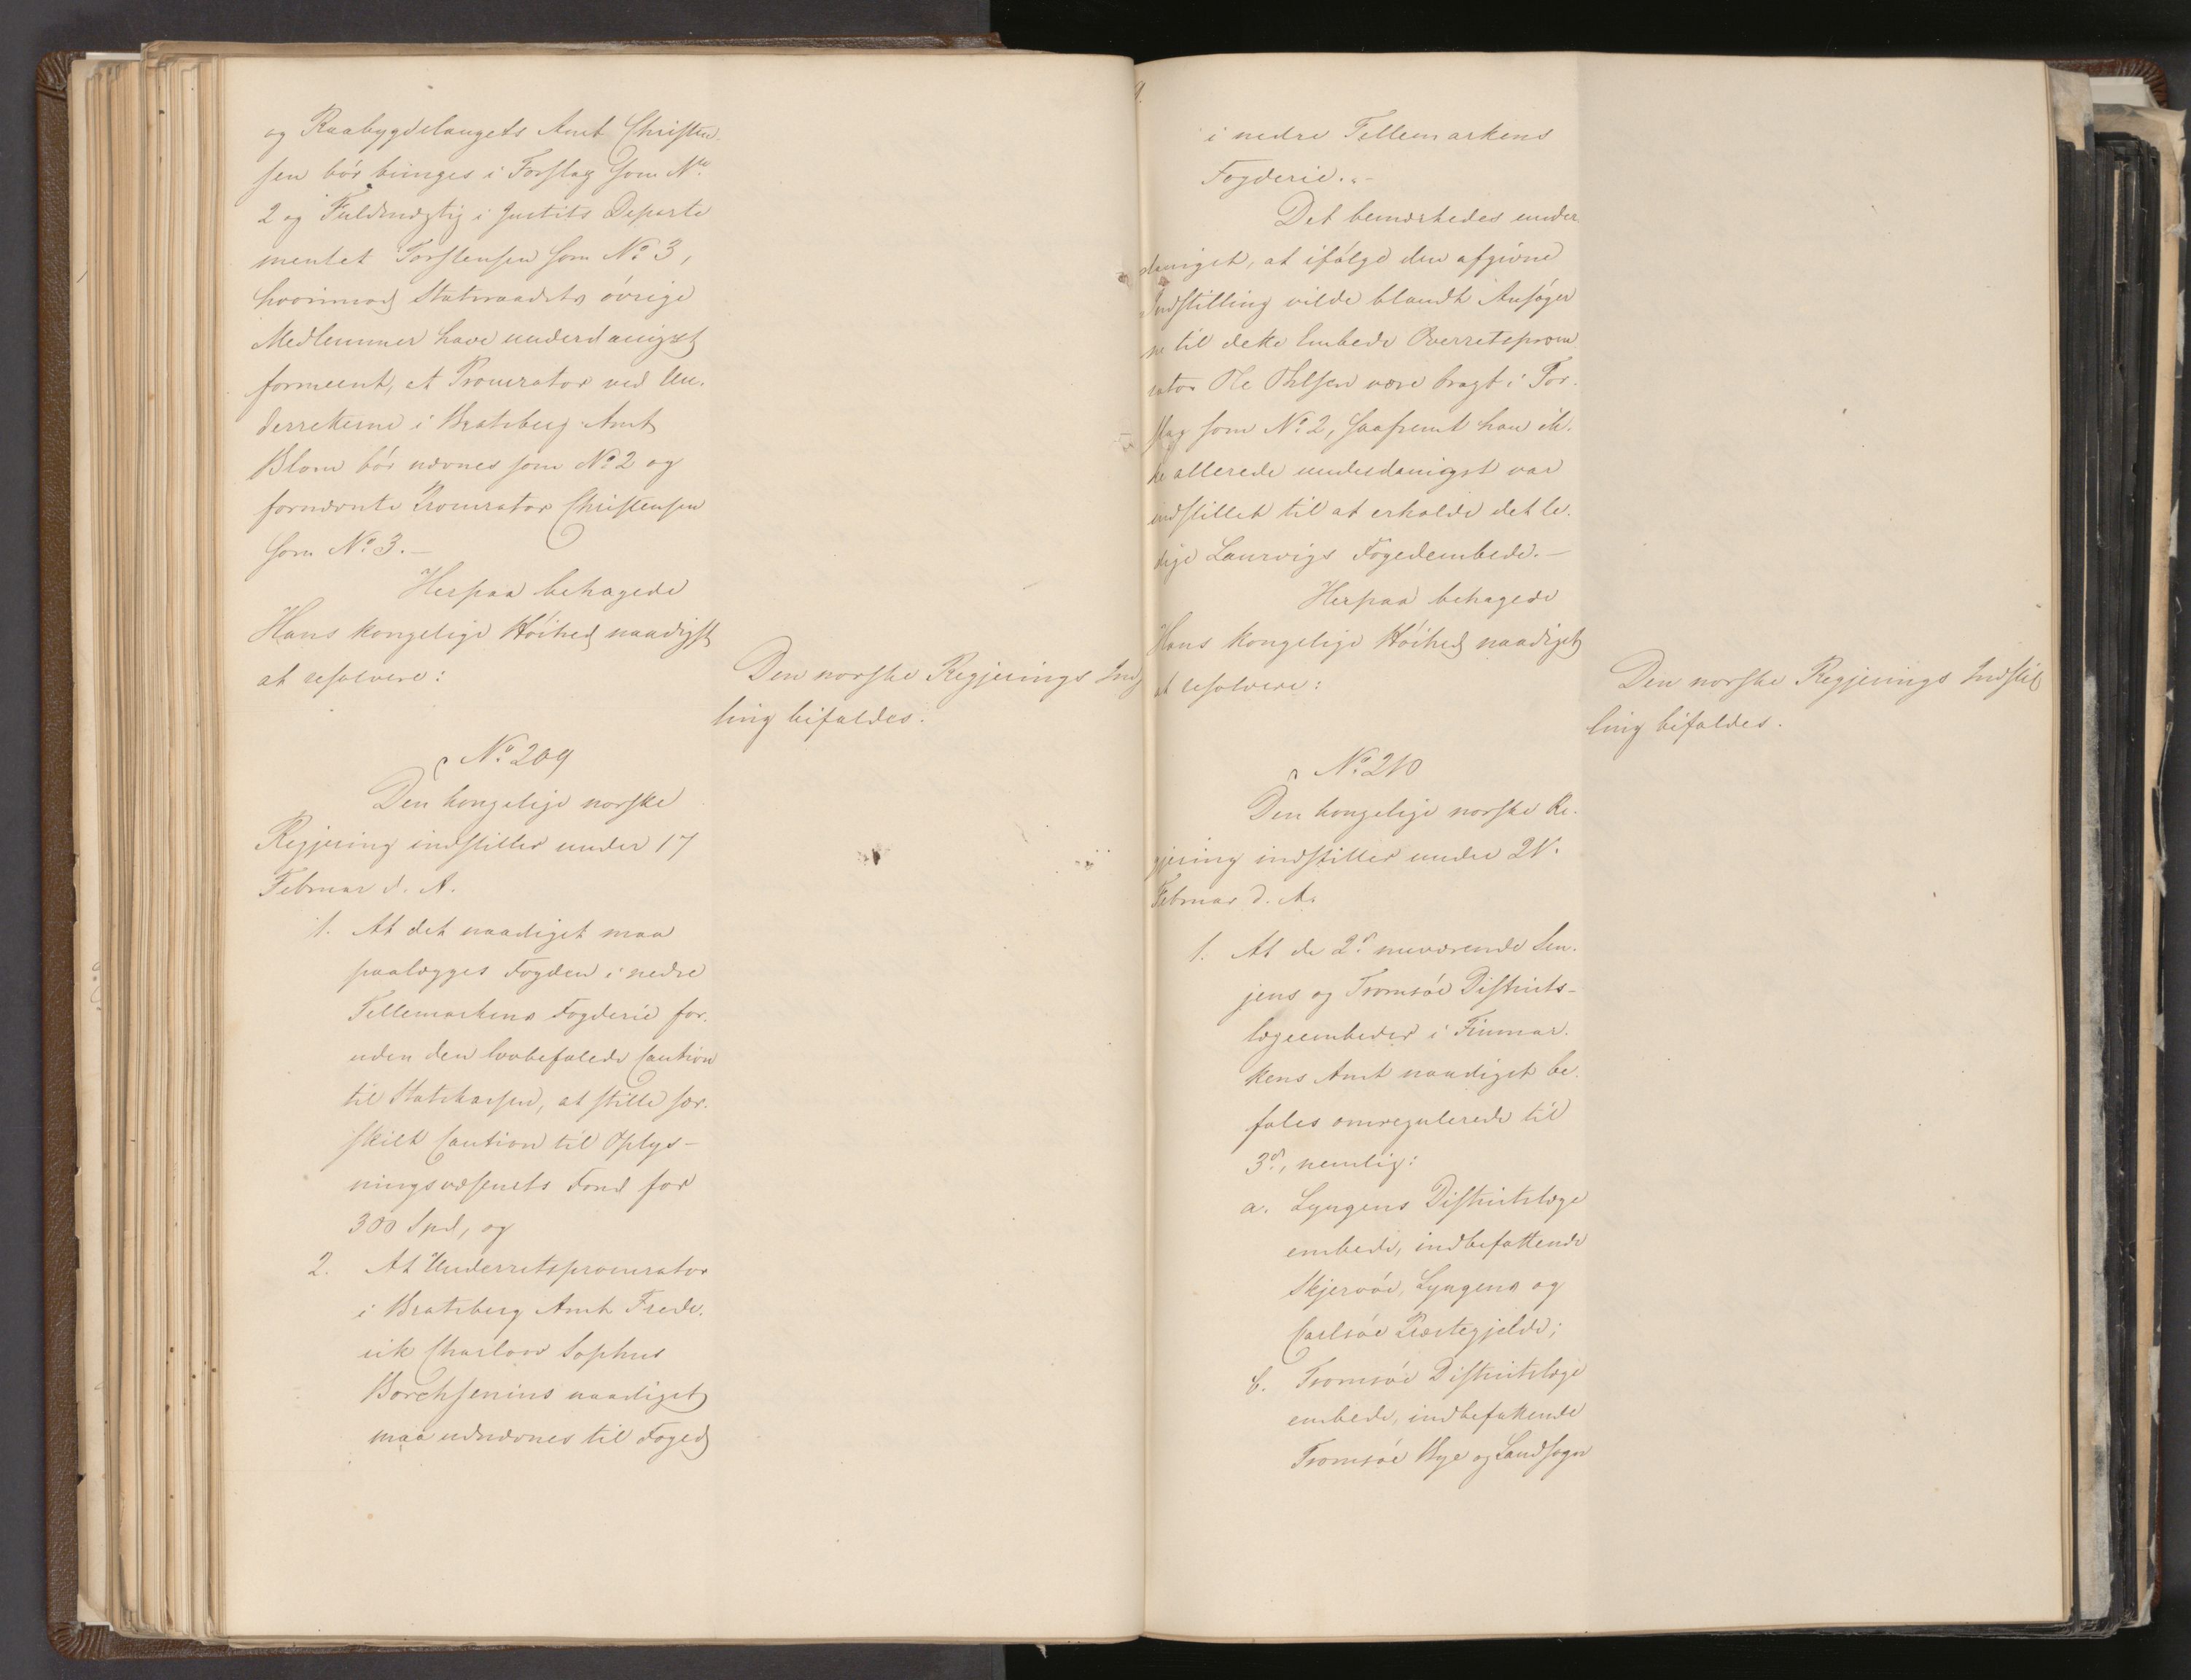 og Raabygdelaugets Amt Christen-
sen bør bringes i Forslag som No
2 og Fuldmægtig i Justits Departe
mentet Torstensen som No 3,
hvorimod Statsraadets øvrige
Medlemmer have underdanigst
formeent, at Procurator ved Un-
derretterne i Bratsberg Amt
Blom bør nævnes som No 2 og
fornævnte Procurator Christensen
som No 3.-
Herpaa behagede
Hans kongelige Høihed naadigst
at resolvere:
Den norske Regjerings Ind
ling bifaldes.
No 209
Den kongelige norske
Regjering indstiller under 17
Februar d. A.
1. At det naadigst maa
paalægges Fogden i nedre
Tellemarkens Fogderie for-
uden den lovbefalede Caution
til Statskassen, at stille sær-
skilt Caution til Oplys-
ningsvæsenets Fond for
300 Spd, og
2. At Underretsprocurator
i Bratsberg Amt Frede-
rik Charlow Sophus
Borchsenius naadigst
maa udnævnes til Foged
i nedre Tellemarkens
Fogderie.-
Det bemærkedes under
danigst, at ifølge den afgivne
Indstilling vilde blandt Ansøger
ne til dette Embede Overretsprocu
rator Ole Ohlsen være bragt i For-
slag som No 2, saafremt han ik-
ke allerede underdanigst var
indstillet til at erholde det le-
dige Laurvigs Fogedembede.-
Herpaa behagede
Hans kongelige Høihed naadigst
at resolvere:
Den norske Regjerings Indstil
ling bifaldes.
No 210
Den kongelige norske Re-
gjering indstiller under 21.
Februar d. A.
1. At de 2de nuværende Sen-
jens og Tromsøe Districts-
lægeembeder i Finmar-
kens Amt naadigst be-
fales omregulerede til
3de, nemlig:
a. Lyngens Districtslæge
embede, indbefattende
Skjervøe, Lyngens og
Carlsøe Præstegjelde;
b. Tromsøe Districtslæge
embede, indbefattende
Tromsøe Bye og Landsogn